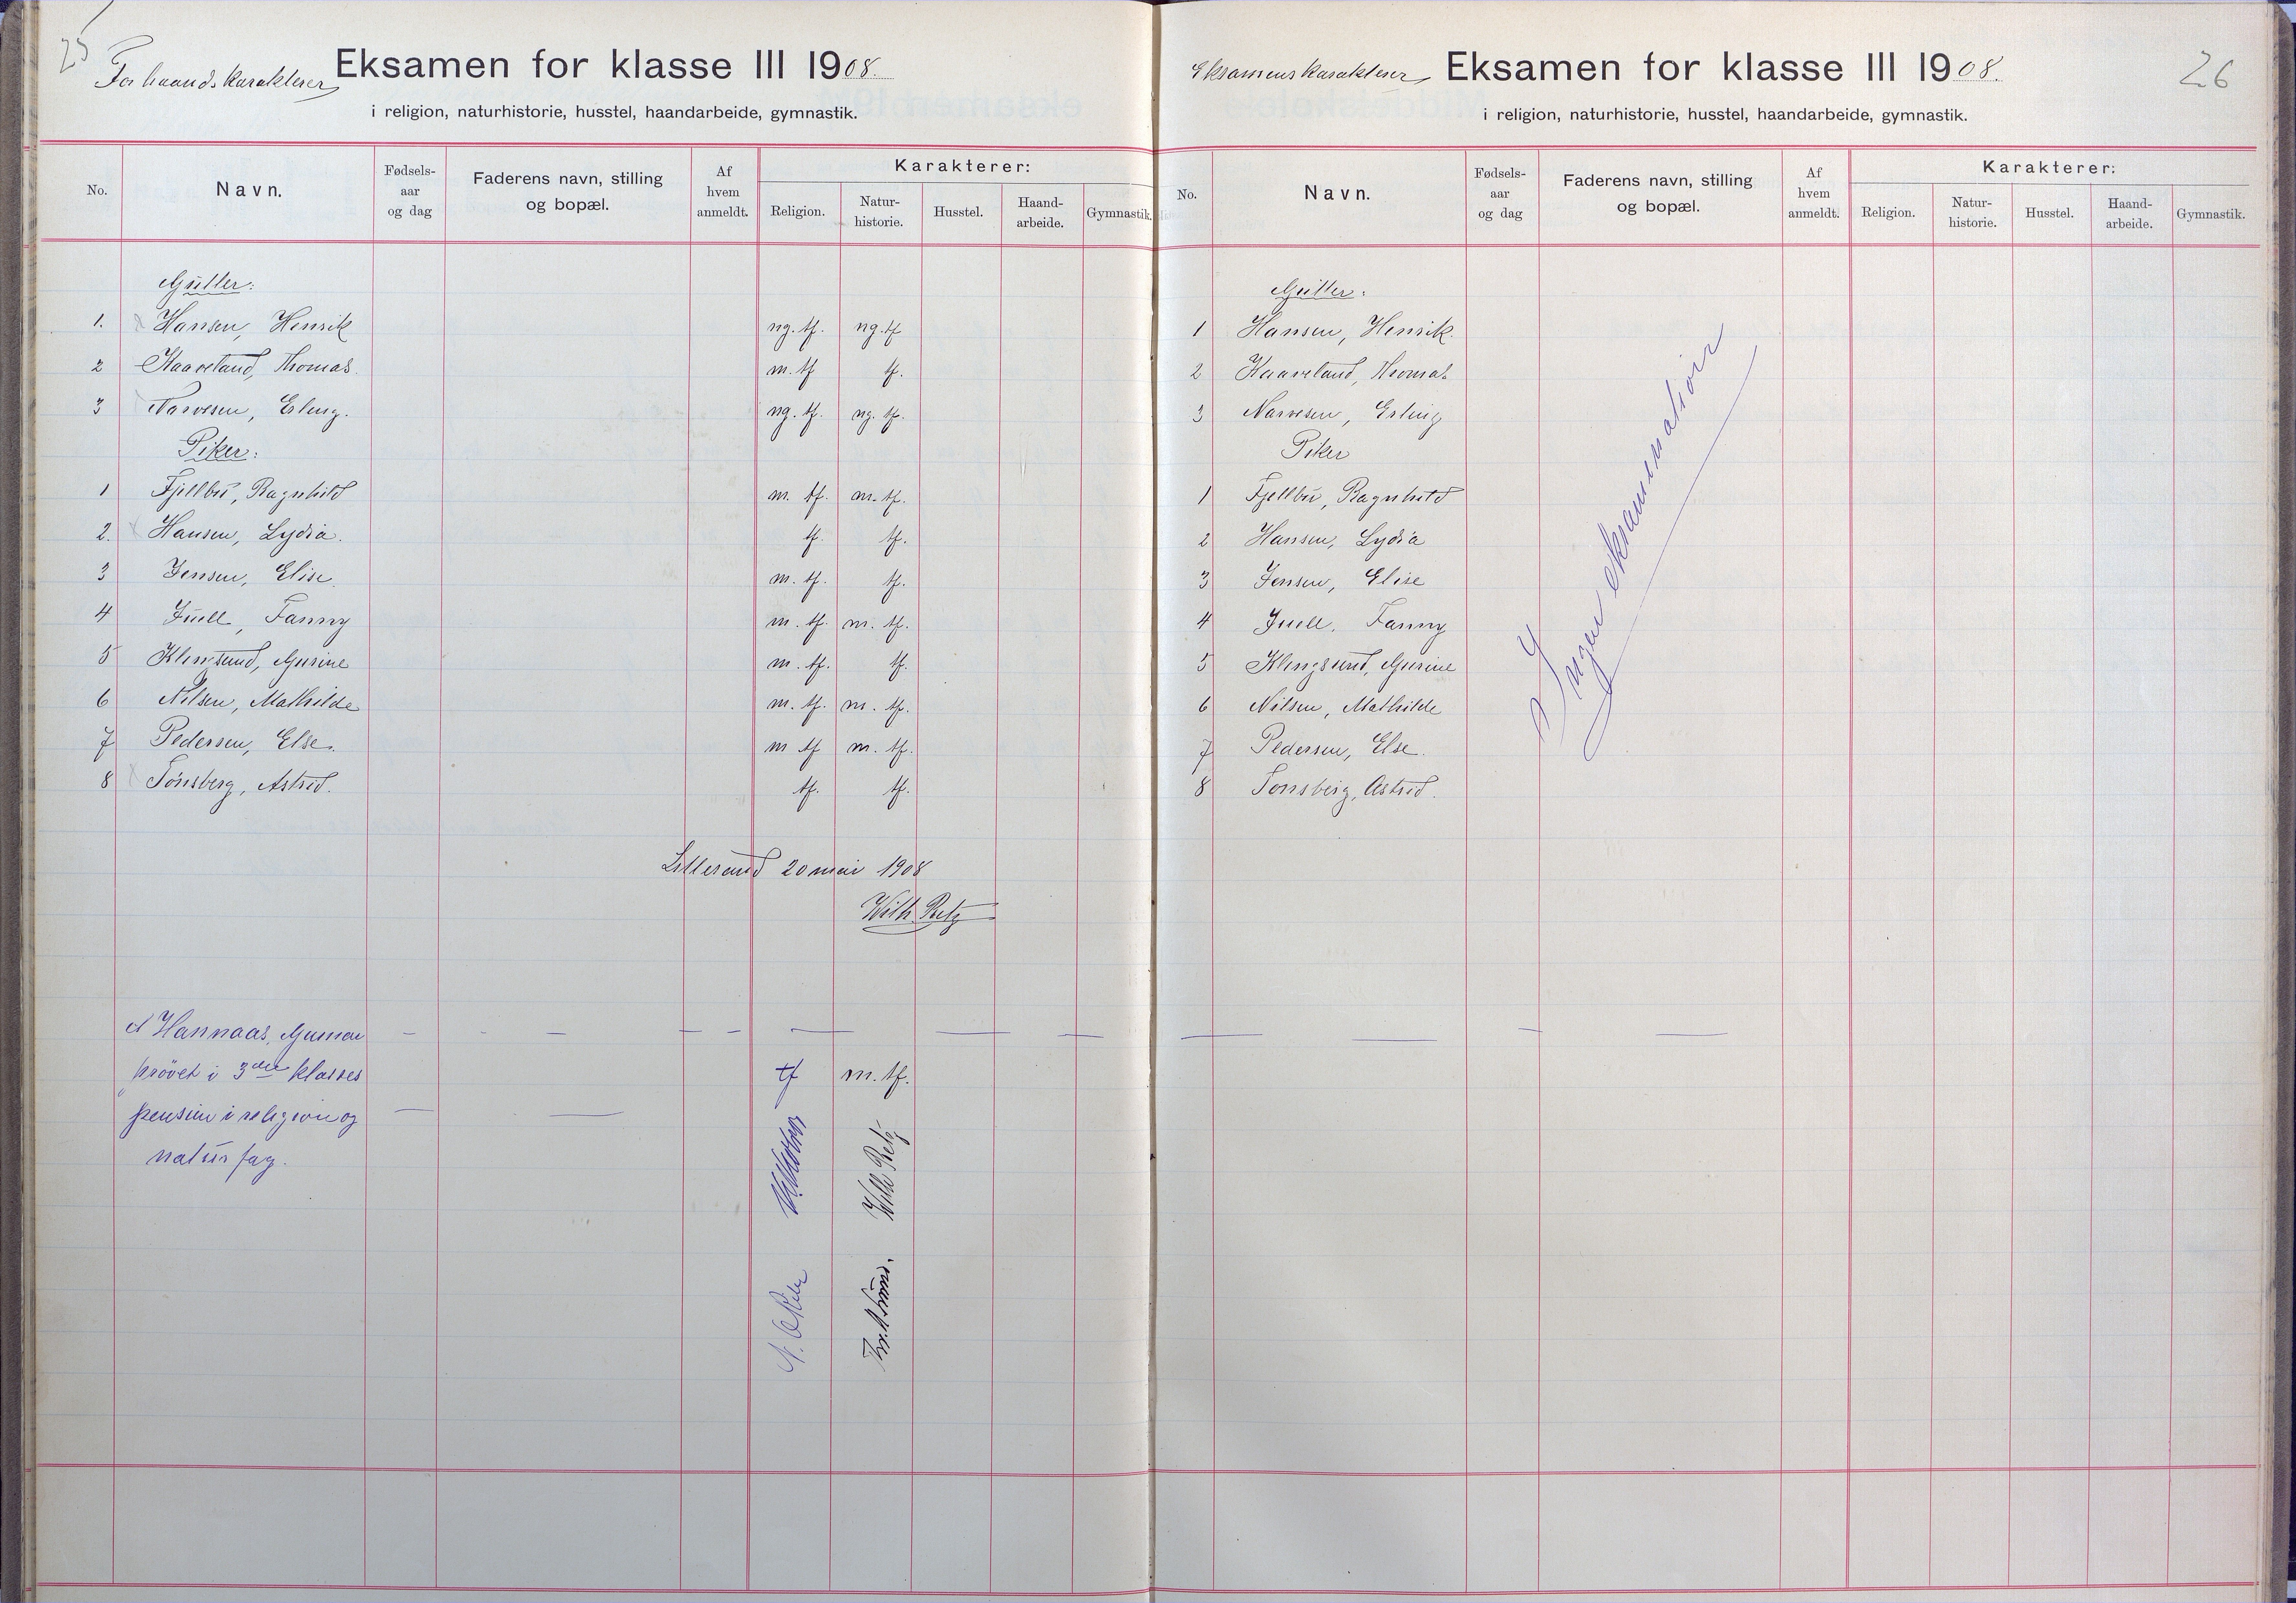 25
Forhaandskarakterer Eksamen for klasse III 1908.
i religion, naturhistorie, husstel, haandarbeide, gymnastik.
No. Navn. Fødsels-aar og dag Faderens navn, stilling og bopæl. Af hvem anmeldt. Karakterer:
Religion. Natur-historie. Husstel. Haand-arbeide. Gymnastik.
Gutter:
1. Hansen, Henrik ng. tf. ng. tf
2 Kaaveland, Thomas. m. tf tf.
3 Narvesen, Erling. ng. tf. ng. tf.
Piker:
1 Fjellbu, Ragnhild m. tf. m. tf.
2. Hansen, Lydia. tf. tf.
3 Jensen, Elise. m. tf. tf.
4 Juell, Fanny m. tf. m. tf.
5 Klingsund, Gurine m. tf. tf.
6 Nilsen, Mathilde m. tf. m. tf.
7 Pedersen, Else. m tf m. tf.
8 Tönsberg, Astrid. tf. tf.
Lillesand 20 mai 1908
Wilh. Retz
Hannaas, Gunnar
prövet i 3die klasses tf m. tf.
pensum i religion og
naturfag.
Wilh Retz
26
Eksamenskarakterer Eksamen for klasse III 1908.
i religion, naturhistorie, husstel, haandarbeide, gymnastik.
No. Navn. Fødsels-aar og dag Faderens navn, stilling og bopæl. Af hvem anmeldt. Karakterer:
Religion. Natur-historie. Husstel. Haand-arbeide. Gymnastik.
Gutter:
1 Hansen, Henrik.
2 Kaaveland, Thomas
3 Narvesen, Erling
Piker
1 Fjellbu, Ragnhild
2 Hansen, Lydia
3 Jensen, Elise
4 Juell, Fanny
5 Klingsund, Gurine
6 Nilsen, Mathilde
7 Pedersen, Else.
8 Tönsberg, Astrid.
Ingen eksamination